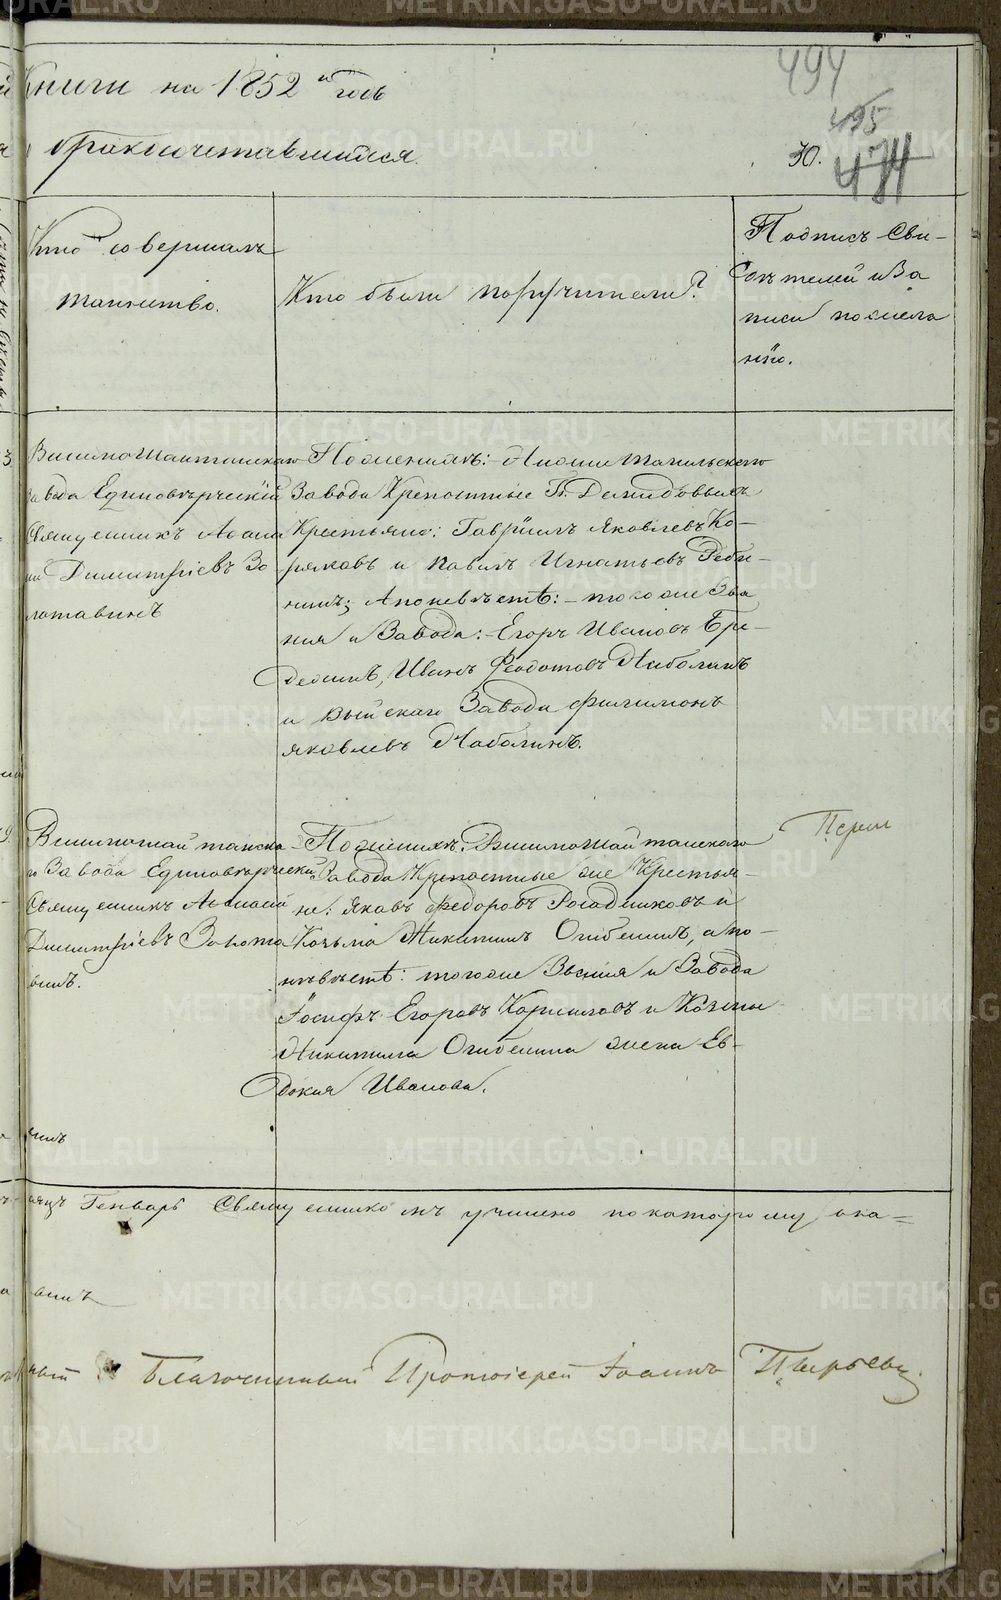 Книги на 1852 й годъ
494
495
бракосочетавшихся.
30.
474
Кто совершалъ
таинство.
Кто были поручители?
Подпись Сви-
дѣтелей и За
писи по жела
нію.
Висимошайтанскаго
завода Единовѣрческій
Священникъ Афана
ій Димитріевъ Зо
лотавинъ
По женихѣ: Нижнетагильскаго
Завода Крепостные Гг. Демидовыхъ
Крестьяне: Гавріилъ Яковлевъ Ко-
ряковъ и Павелъ Игнатьевъ Реби-
нинъ; А по невѣстѣ: того же Зва
нія и Завода: Егоръ Ивановъ Бре-
дехинъ, Иванъ Феодотовъ Наболинъ
и Выйскаго Завода Филимонъ
Яковлевъ Наболинъ.
Висимошайтанска
го Завода Единовѣрческій
Священникъ Афанасій
Димитріевъ Золота
винъ.
По женихѣ: Висимошайтанскаго
Завода Крепостные же Крестья-
не: Яковъ Федоровъ и
Козьма Никитинъ Огибенинъ, а по
невѣстѣ: того же Званія и Завода
Іосифъ Егоровъ Корниловъ и Козьмы
Никитина Огибенина жена Ев-
докия Иванова.
Перш
яцъ Генварь Священникомъ учинено по которому ока=
винъ
ный Благочинный Протоіерей Іоаннъ Пырьевъ.
METRIKI.GASO-URAL.RU